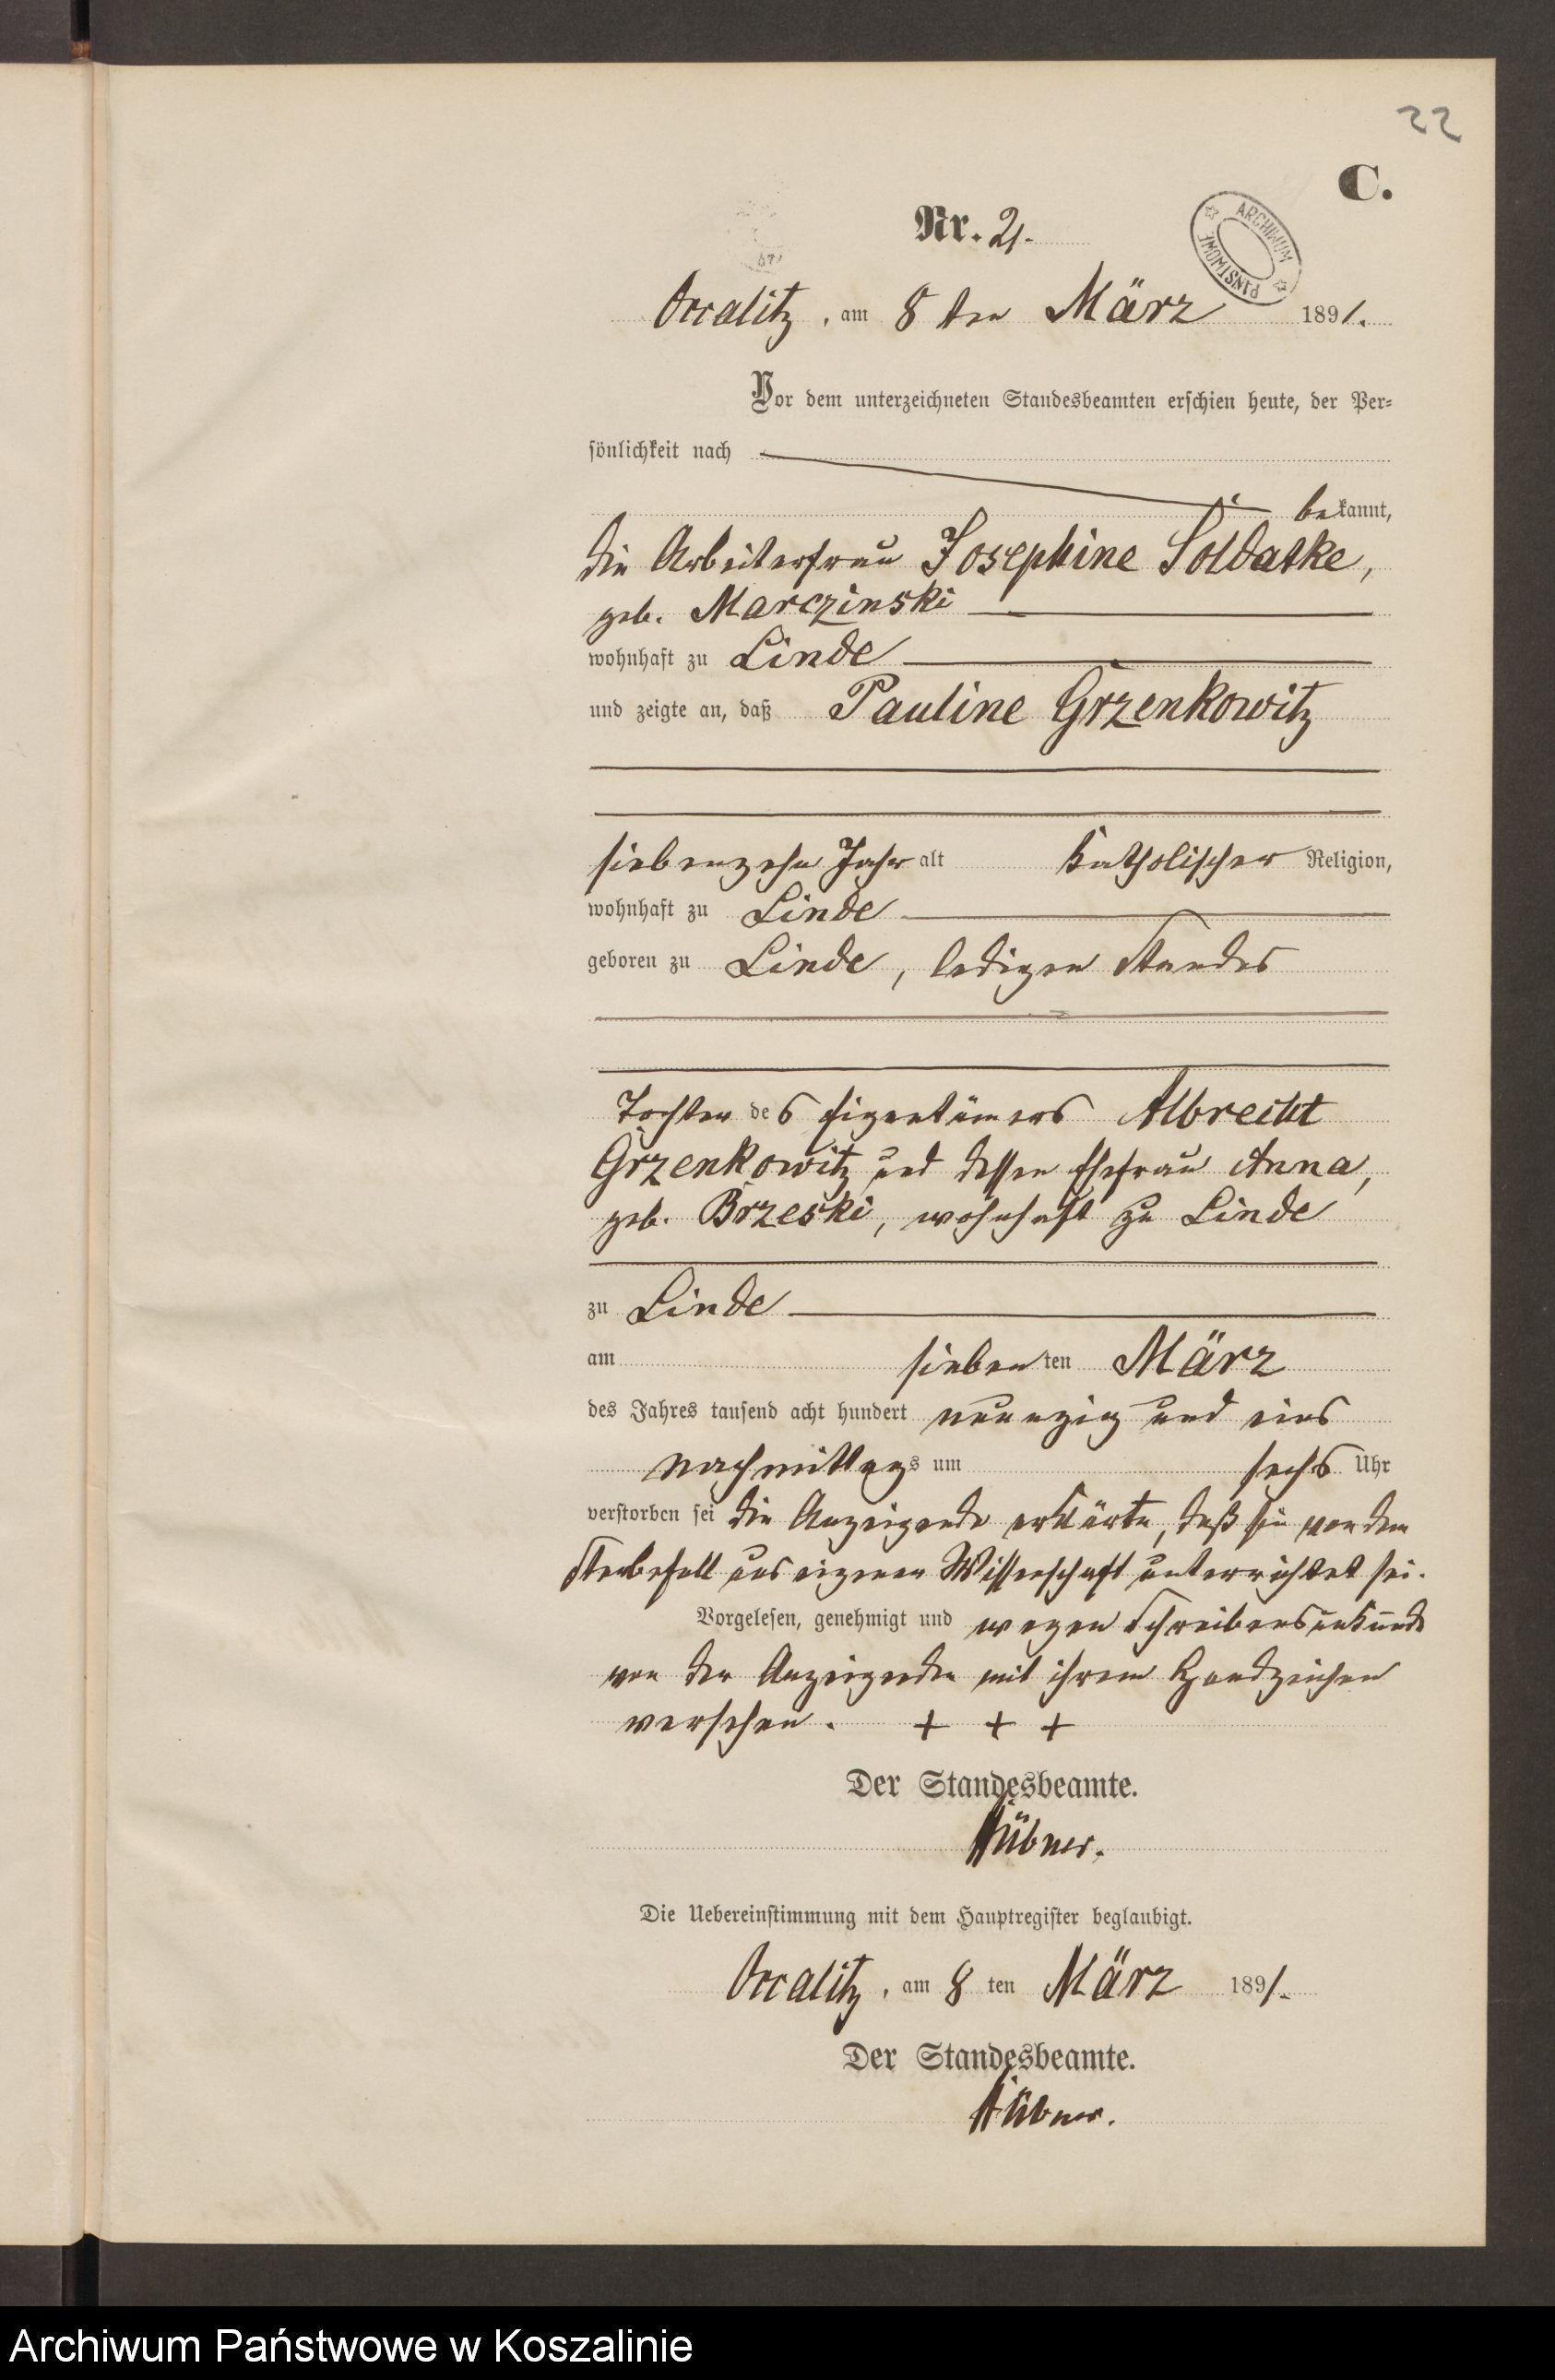 22
C.
ARCHIWUM PAŃSTWOWE
Nr. 21.
Occalitz, am 8 ten März 1891.
Vor dem unterzeichneten Standesbeamten erschien heute, der Per-
sönlichkeit nach
bekannt,
die Arbeiterfrau Josephine Soldatke,
geb. Marczinski
wohnhaft zu Linde
und zeigte an, daß Pauline Grzenkowitz
siebenzehn Jahr alt katholischer Religion,
wohnhaft zu Linde
geboren zu Linde, ledigen Standes
Tochter des Eigentümers Albrecht
Grzenkowitz und dessen Ehefrau Anna,
geb. Brzeski, wohnhaft zu Linde
zu Linde
am siebenten März
des Jahres tausend acht hundert neunzig und eins
nachmittags um sechs Uhr
verstorben sei die Anzeigende erklärte, daß sie von dem
Sterbefall aus eigener Wissenschaft unterrichtet sei.
Vorgelesen, genehmigt und wegen Schreibensunkunde
von der Anzeigenden mit ihrem Handzeichen
versehen. + + +
Der Standesbeamte.
Hübner.
Die Uebereinstimmung mit dem Hauptregister beglaubigt.
Occalitz, am 8 ten März 1891.
Der Standesbeamte.
Hübner.
Archiwum Państwowe w Koszalinie